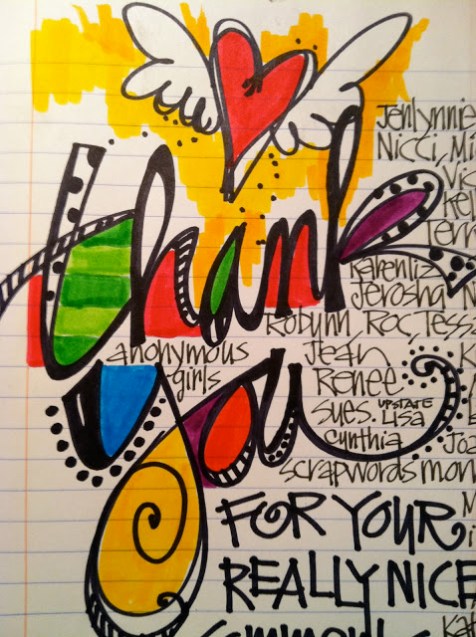 thank
you
Janlynnie
Nicci, Mi
Vic
Kel
Terri
Karenliz
Jerosha N
Robynn Roc, Tess
anonymous
girls
Jean
Renee
Sues. UPSTATE Lisa
Cynthia Joa
scrapwordsmom
FOR YOUR
REALLY NICE